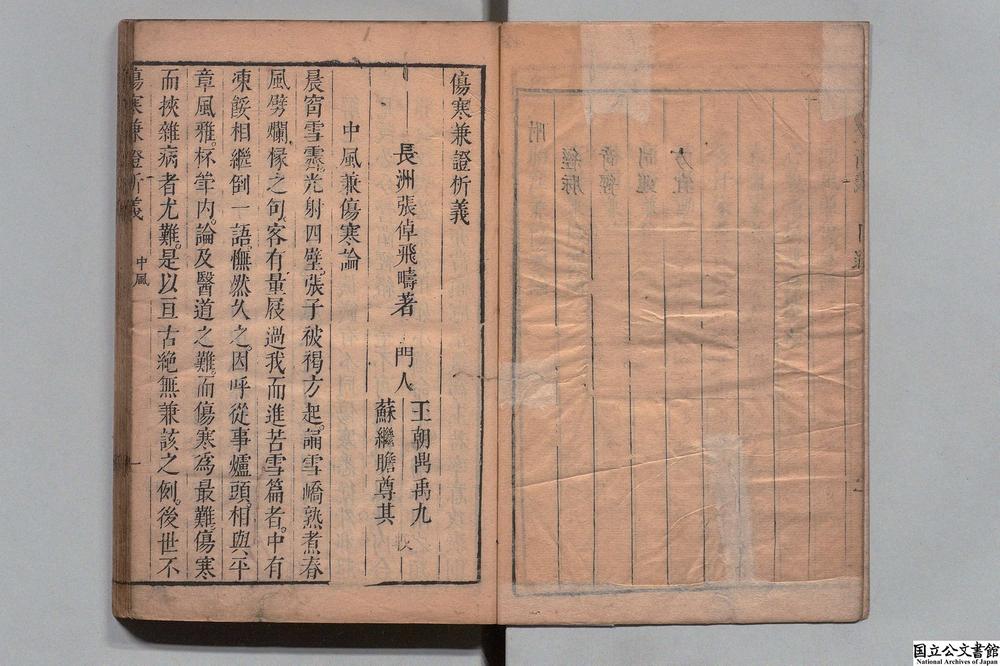 附
經脉
奇經
運
方宜
傷寒兼證析義
長洲張倬飛疇著 門人 王朝鼎禹九 蘇繼瞻尊其
中風兼傷寒論
晨窗雪霽光射四壁張子被褐方起誦雪嶠熟煮春
風劈爛椽之句客有量屐過我而進苦雪篇者中有
凍餒相繼倒一語憮然久之因呼從事爐頭相與平
章風雅杯箑内論及醫道之難而傷寒為最難傷寒
而挾雜病者尤難是以亘古絶無兼該之例後世不
傷寒兼證析義 中風 一
国立公文書館
National Archives of Japan